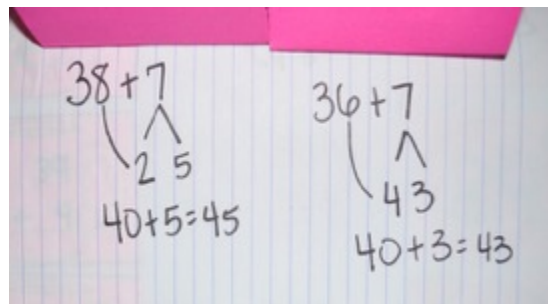 38+7
2 5
40+5=45
36+7
4 3
40+3=43